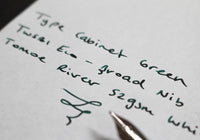 Type Cabinet Green
TWSBI Eco - Broad Nib
Tomoe River 52gsm Whi